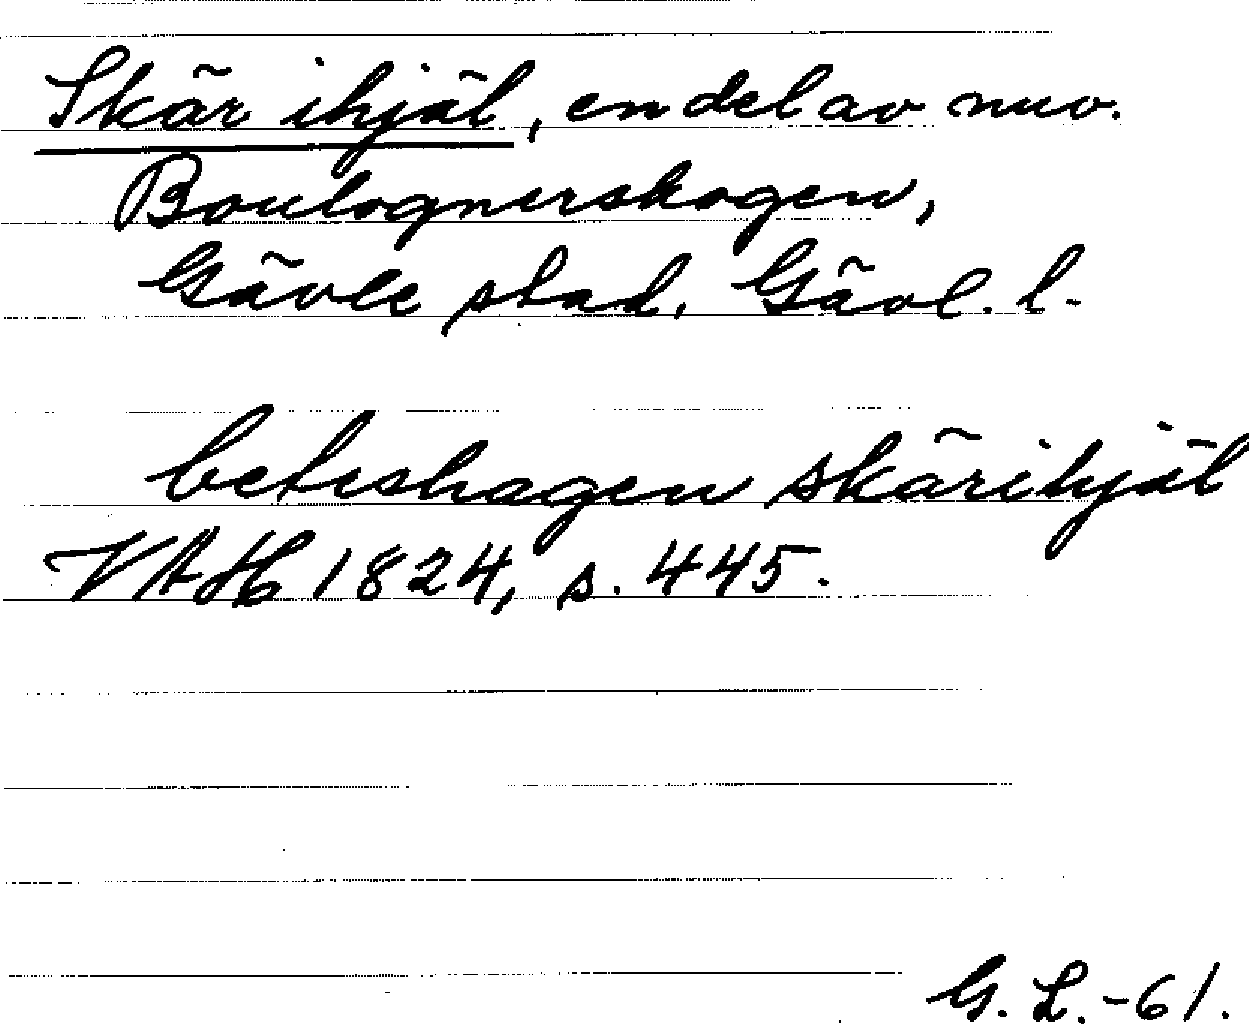 Skär ihjäl, en del av nuv.
Boulognerskogen,
Gävle stad, Gävl. l.
beteshagen skärihjäl
VAH 1824, s. 445.
G. L. -61.